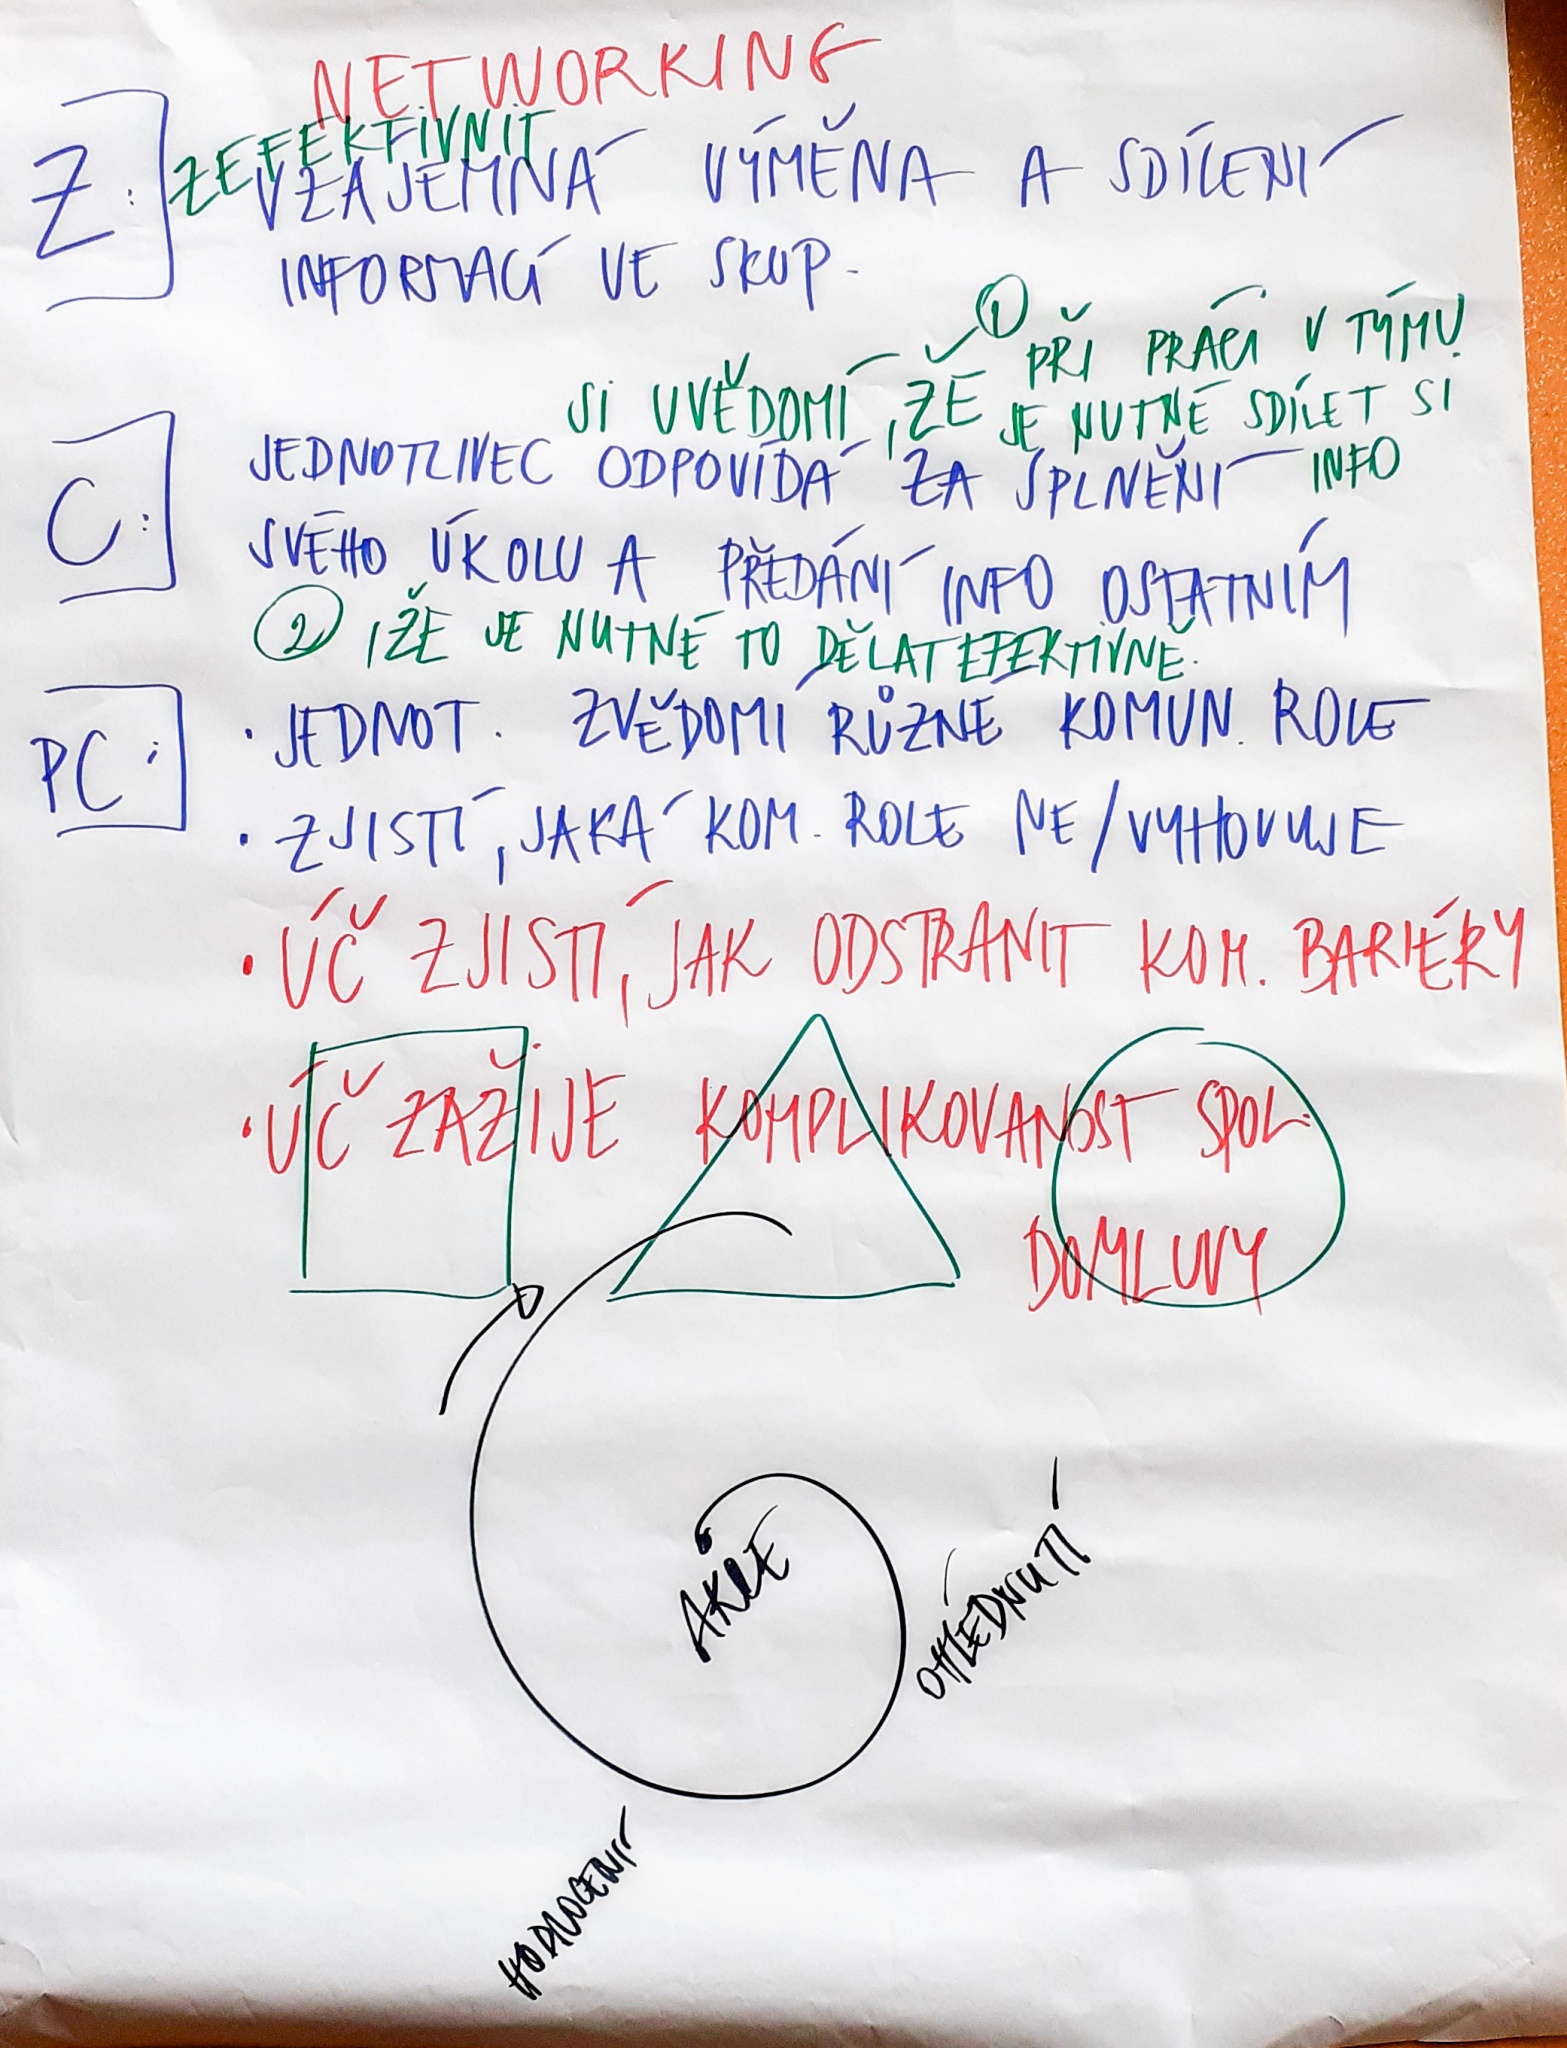 NETWORKING
ZEFEKTIVNIT
Z: VZÁJEMNÁ VÝMĚNA A SDÍLENÍ
INFORMACÍ VE SKUP.
① PŘI PRÁCI V TÝMU
SI UVĚDOMÍ, ŽE JE NUTNÉ SDÍLET SI
INFO
C: JEDNOTLIVEC ODPOVÍDÁ ZA SPLNĚNÍ
SVÉHO ÚKOLU A PŘEDÁNÍ INFO OSTATNÍM
② , ŽE JE NUTNÉ TO DĚLAT EFEKTIVNĚ.
PC: · JEDNOT. ZVĚDOMÍ RŮZNÉ KOMUN. ROLE
· ZJISTÍ, JAKÁ KOM. ROLE NE/VYHOVUJE
· ÚČ ZJISTÍ, JAK ODSTRANIT KOM. BARIÉRY
· ÚČ ZAŽIJE KOMPLIKOVANOST SPOL.
DOMLUVY
AKCE
OHLÉDNUTÍ
HODNOCENÍ